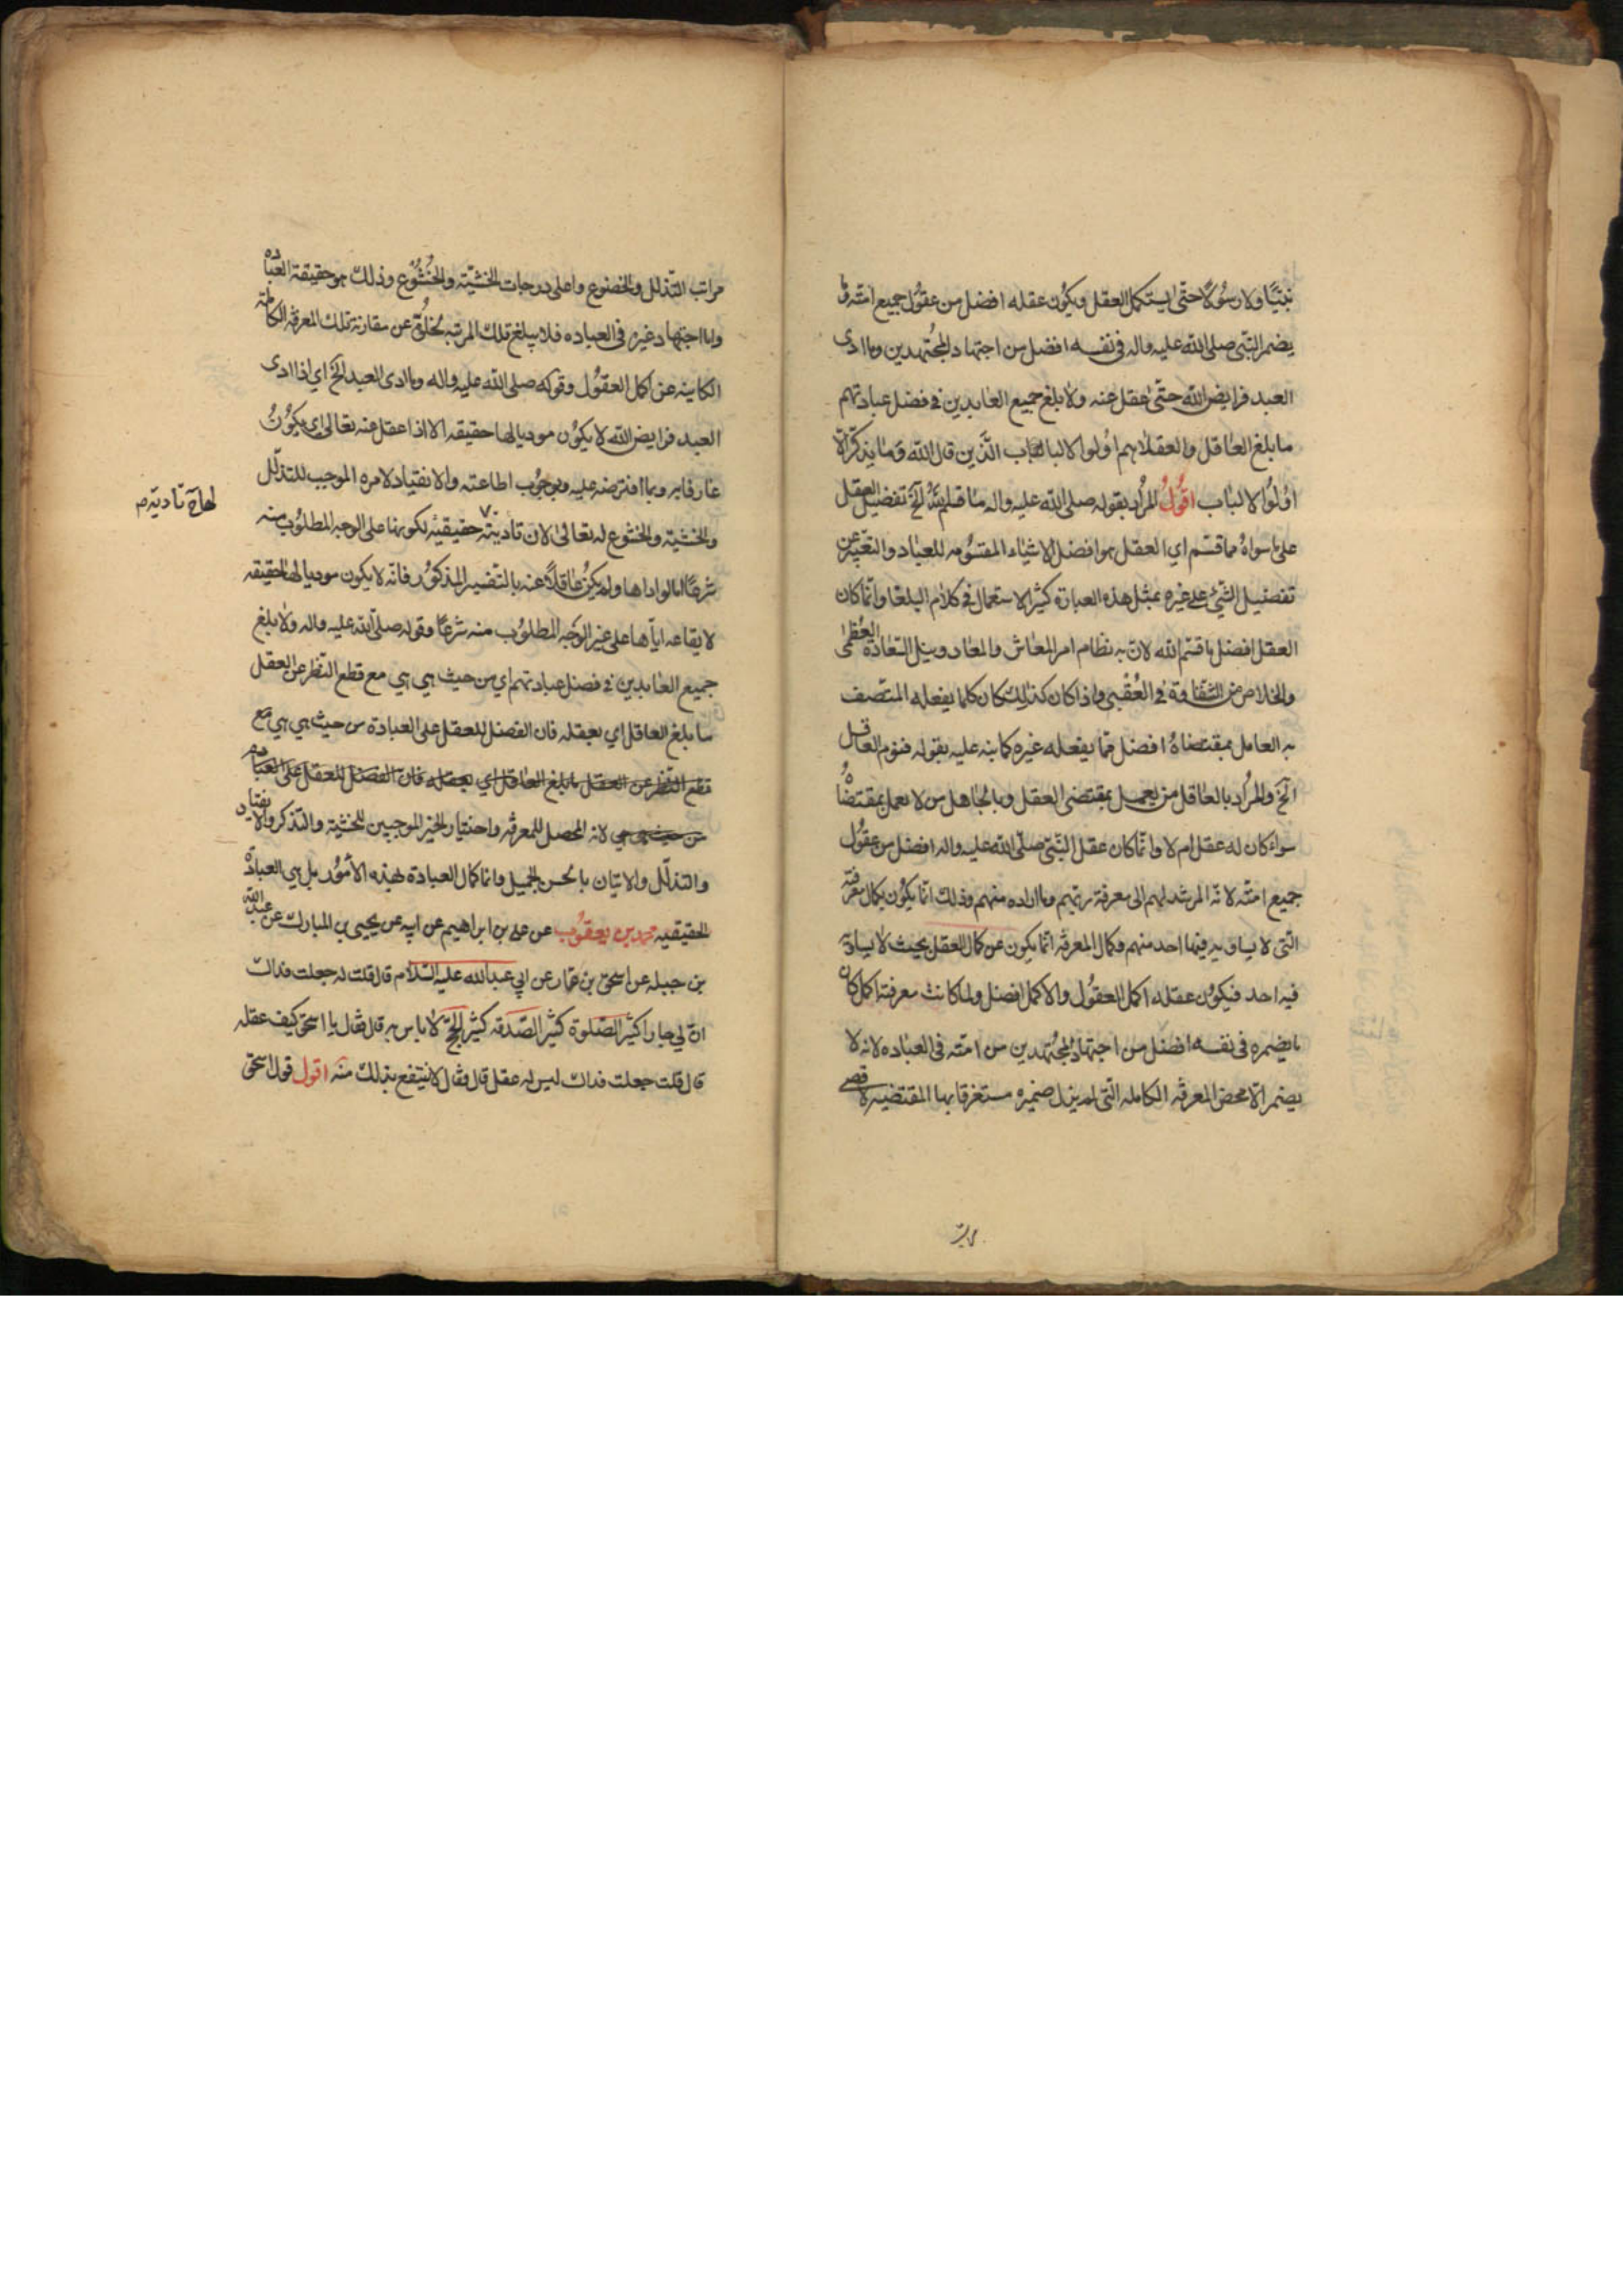 نبيّا ولا رسُولًا حتّى يستكمل العقل ويكون عقله افضل من عقُول جميع امته وما
يضمر النّبى صلى الله عليه واله فى نفسه افضل من اجتهاد المجُتهدين وما ادى
العبد فرايض الله حتّى عقل عنه ولا بلغ جميع العابدين فى فضل عبادتهم
ما بلغ العاقل والعقلا هم اولوا الالباب الّذين قال الله وما يذكّر الا
اولُوا الالباب اقُولُ المرُاد بقوله صلى الله عليه واله ما قسم الله الخ تفضيل العقل
على ما سواهُ مما قسّم اي العقل هو افضل الاشياء المقسُومه للعباد والتعّبير عن
تفضيل الشّيئ على غيره بمثل هذه العبارة كثير الاستعمال في كلام البلغا وانّما كان
العقل افضل ما قسّم الله لانّ به نظام امر المعاش والمعاد وينل السّعادة العُظمى
والخلاص من الشقاوة في العُقبى واذا كان كذلك كان كلما يفعله المتّصف
به العامل بمقتضاهُ افضل ممّا يفعله غيره كما نبه عليه بقوله فنوم العاقل
الخ والمرُاد بالعاقل من يعمل بمقتضى العقل وبالجُاهل من لا يعمل بمقتضاهُ
سواء كان له عقل ام لا وانّما كان عقل النّبى صلّى الله عليه واله افضل من عقُول
جميع امته لانّه المرشد لهم الى معرفة ربّهم وما اراده منهم وذلك انّما يكُون بكمال معرفته
التى لا يساويه فيها احد منهم وكمال المعرفه انّما يكون عن كمال العقل بحيث لا يساويه
فيه احد فيكوُن عقله اكمل العقُول والاكمل افضل ولما كانت معرفته اكمل كان
ما يضمره فى نفسه افضل من اجتهاد المجُتهدين من امته فى العباده لانه لا
يضمر الّا محض المعرفه الكامله الّتى لم يزل ضميره مستغرقا بها المقتضيه لاقصى
مراتب
مراتب التّذلل والخضوع واعلى درجات الخشيّه والخُشُوع وذلك هو حقيقة العباده
واما اجتهاد غيره فى العباده فلا يبلغ تلك المرتبه لخلُوّه عن مقارنة تلك المعرفه الكامله
الكاينه عن اكمل العقُول وقوله صلى الله عليه واله وما ادى العبد الخ اي اذا ادى
العبد فرايض الله لا يكوُن موديا لها حقيقه الا اذا عقل عنه تعالى اي يكوُن
عارفا به وبما افترضه عليه وبوجوُب اطاعته والانقياد لامره الموجب للتذلّل
والخشيه والخشوع له تعالى لان تاديته حقيقيّه لكونها على الوجه المطلوُب منه
لها تاديه م
شرعًا اما لو اداها ولم يكن عاقلًا عنه بالتفسير المذكوُر فانّه لا يكون موديا لها حقيقه
لايقاعه ايّاها على غير الوجه المطلوُب منه شرعًا وقوله صلّى الله عليه واله ولا بلغ
جميع العابدين فى فضل عبادتهم اي من حيث هي هي مع قطع النّظر عن العقل
ما بلغ العاقل اي بعقله فان الفضل للعقل على العبادة من حيث هي هي مع
قطع النّظر عن العقل ما بلغ العاقل اي بعقله فان الفضل للعقل على العباده
من حيث هي هي لانه المحصل للمعرفه واختيار الخير الموجبين للخشيه والتذكر والانقياد
والتذلّل والاتيان باحسن الجميل وانما كمال العبادة لهذه الامُور بل هي العبادة
الحقيقيه محمد بن يعقوُب عن على بن ابراهيم عن ابيه عن يحيى بن المبارك عن عبد الله
بن جبله عن اسحق بن عمار عن ابي عبد الله عليه السّلام قال قلت له جعلت فداك
انّ لي جارا كثير الصّلوة كثير الصّدقه كثير الحجّ لا باس به قال فقال يا اسحق كيف عقله
قال قلت جعلت فداك ليس له عقل قال فقال لا ينتفع بذلك منه اقول قول اسحق